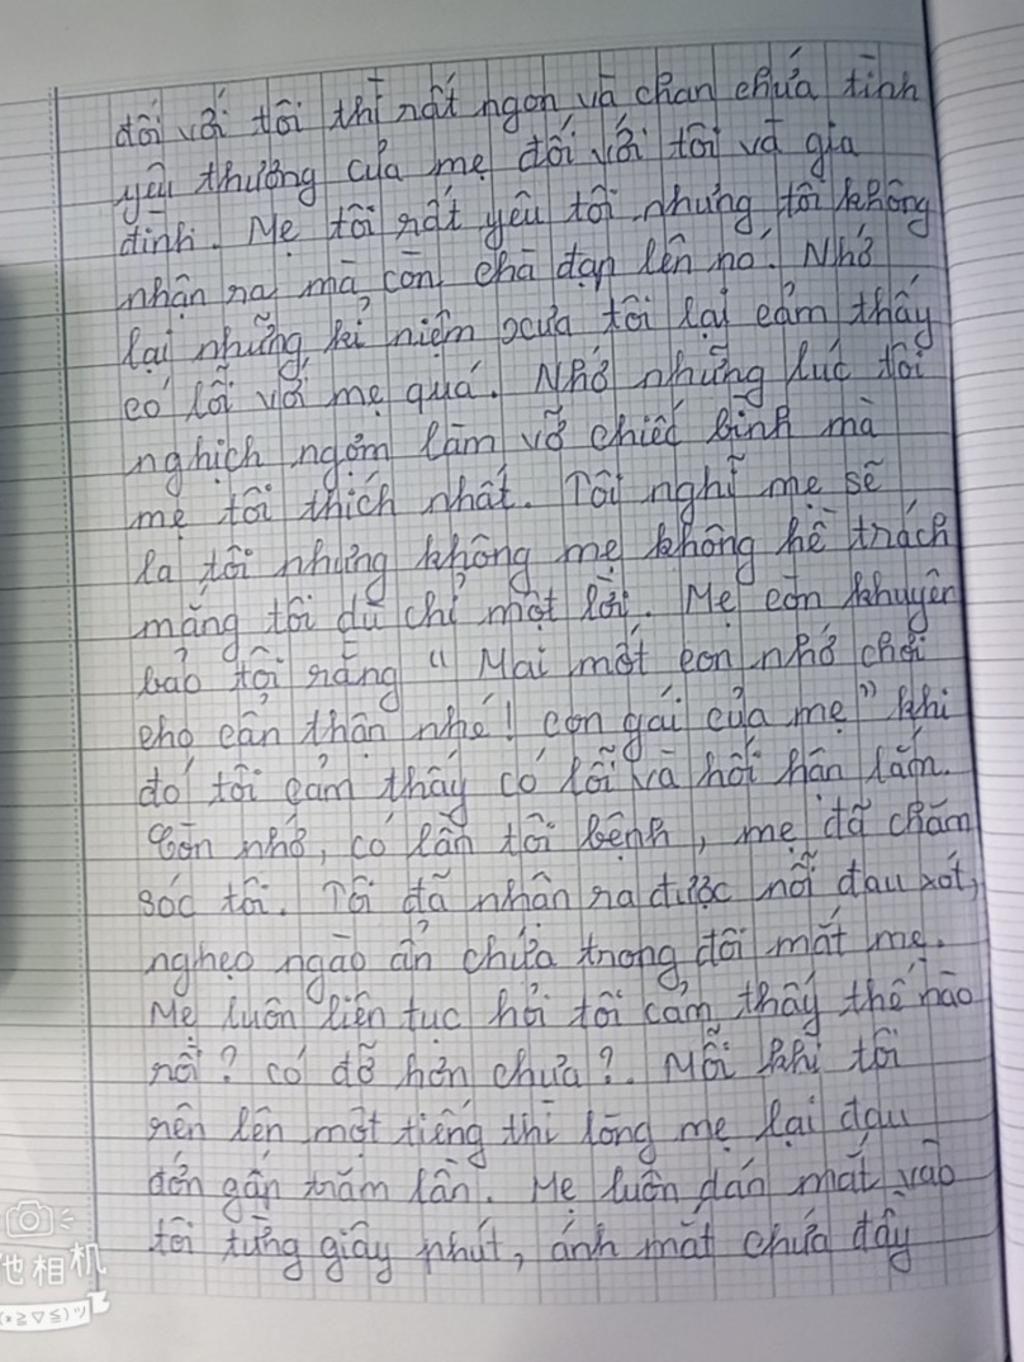 đối với tôi thì rất ngon và chan chứa tình
yêu thương của mẹ đối với tôi và gia
đình. Mẹ tôi rất yêu tôi nhưng tôi không
nhận ra mà còn chà đạp lên nó. Nhớ
lại những kỉ niệm xưa tôi lại cảm thấy
có lỗi với mẹ quá. Nhớ những lúc tôi
nghịch ngợm làm vỡ chiếc bình mà
mẹ tôi thích nhất. Tôi nghĩ mẹ sẽ
la tôi nhưng không mẹ không hề trách
mắng tôi dù chỉ một lời. Mẹ còn khuyên
bảo tôi rằng “ Mai mốt con nhớ chơi
cho cẩn thận nhé! con gái của mẹ” khi
đó tôi cảm thấy có lỗi và hối hận lắm.
Còn nhớ, có lần tôi bệnh, mẹ đã chăm
sóc tôi. Tôi đã nhận ra được nỗi đau xót,
nghẹo ngào ẩn chứa trong đôi mắt mẹ.
Mẹ luôn liên tục hỏi tôi cảm thấy thế nào
rồi? có đỡ hơn chưa?. Mỗi khi tôi
rên lên một tiếng thì lòng mẹ lại đau
đớn gấp trăm lần. Mẹ luôn dán mắt vào
tôi từng giây phút, ánh mắt chứa đầy
他相机
(*≧▽≦)ツ